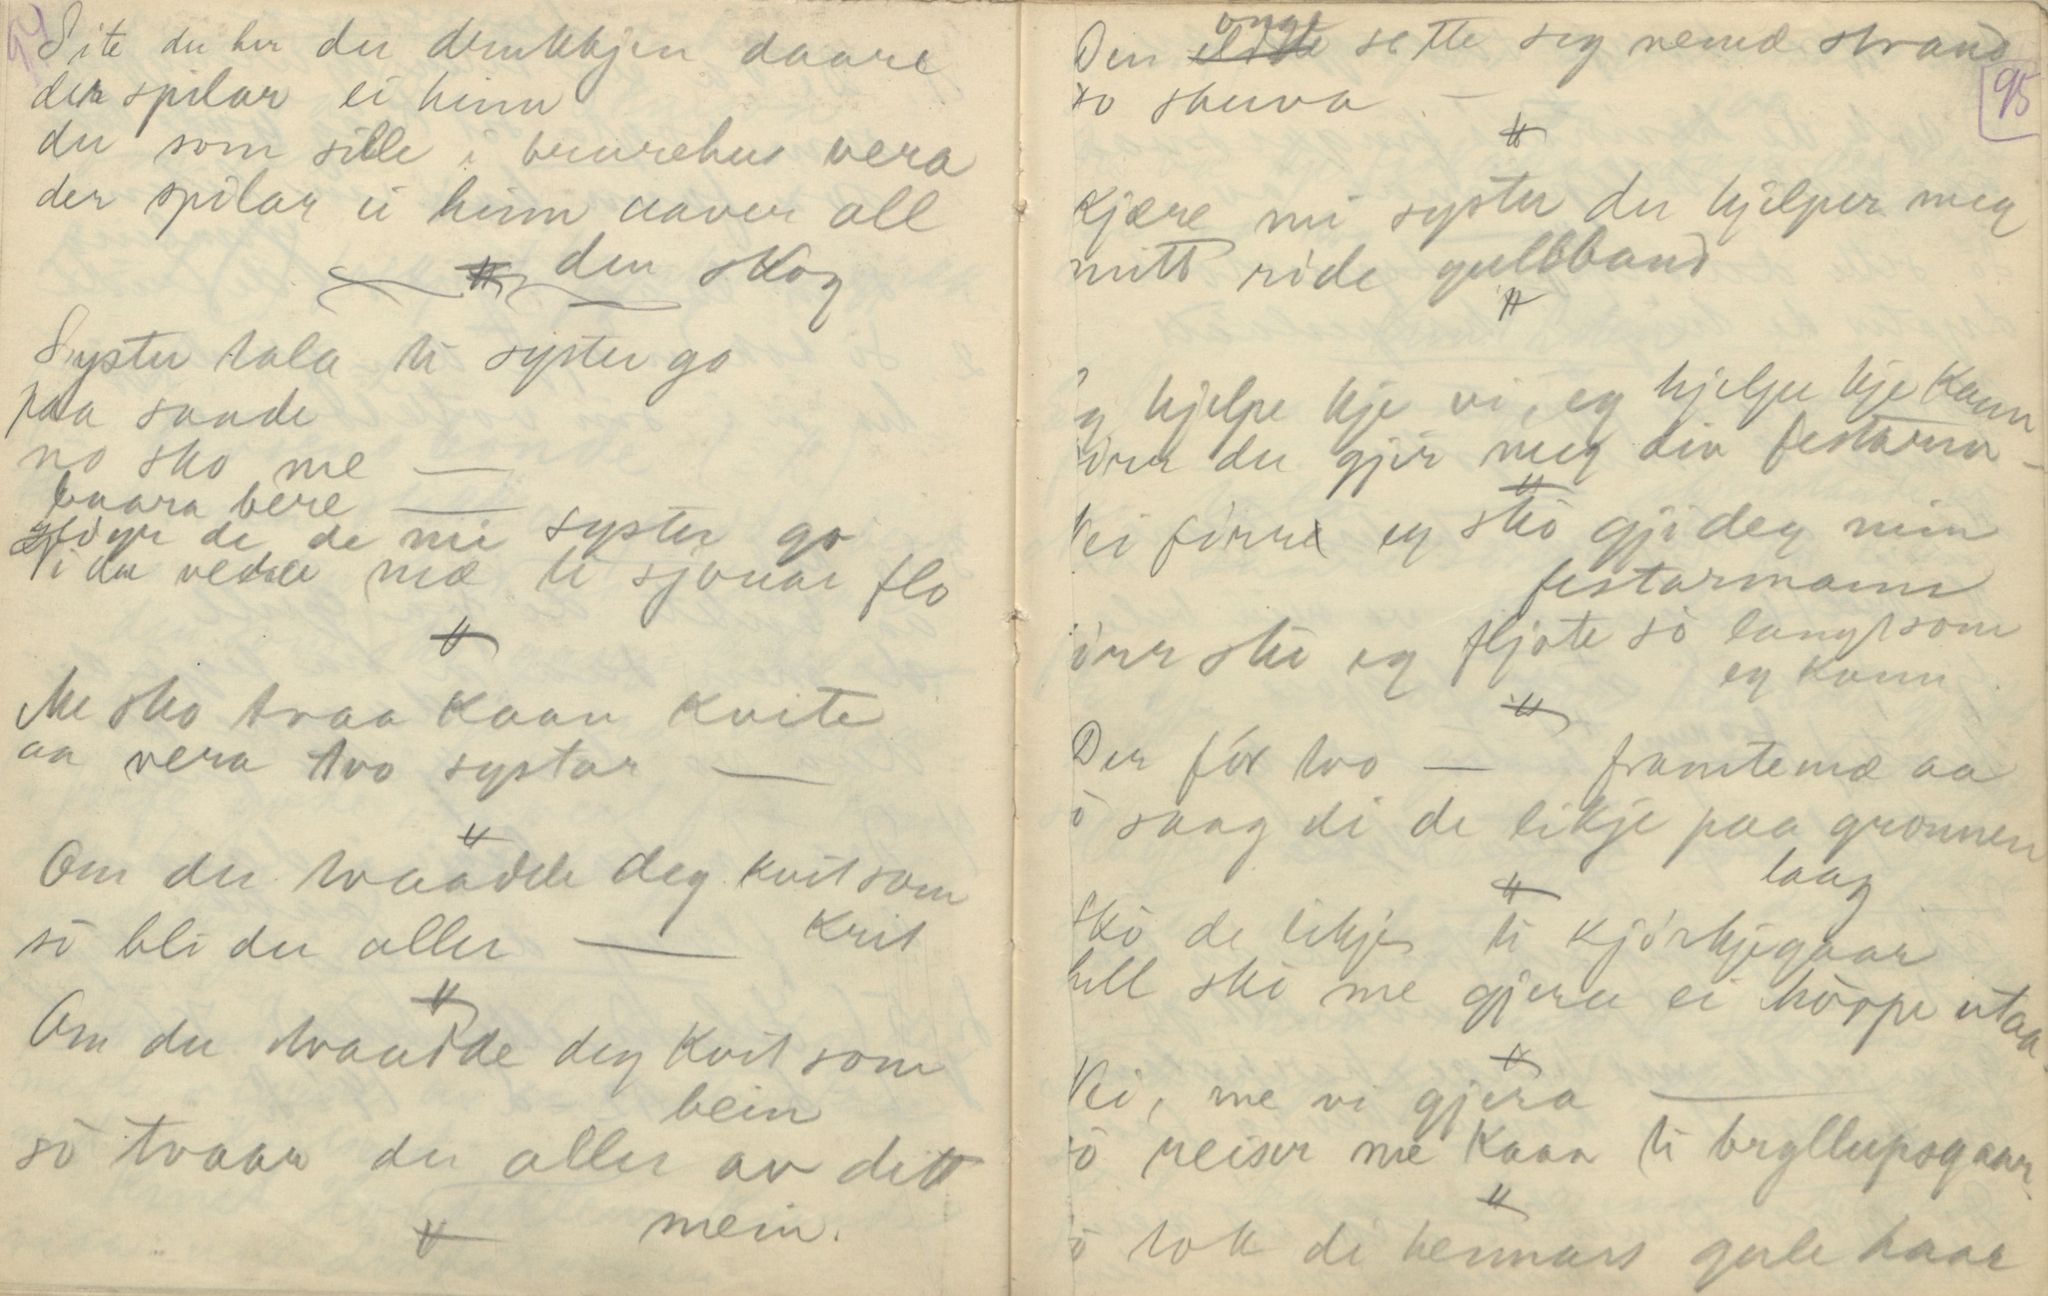 94
Site du her du drukkjen daare
der spilar ei hinn
du som sille i brurehus vera
der spilar ei hinn aaver all
den skog
Syster tala ti syster go
paa sande
no sko me —
baara bere —
de de mi syster go
du vedde mæ ti sjouar flo
Me sko tvaa kaan kvite
aa vera tvo systar —
Om du tvaadde deg kvit som
krit
sò bli du aller —
Om du tvaadde deg kvit som
bein
sò tvaar du aller av ditt
mein.
95
Den eldste onge sette seg nemæ strand
so skuva —
Kjære mi syster du hjelper meg
mitt ride gullband
hjelpe kje vi, eg hjelpe kje kann
du gjer meg din festarm—
Nei fórre eg skò gji deg min
festarmann
fórr ski eg fljote sò langt som
eg kann
Der fór tvo — framtemæ aa
ò saag di de likje paa gronnen
laag
Skò de likje ti kjórkjegaar
hell ski me gjera ei hòrpe utaa
Nei, me vi gjera —
sò reiser me kaan ti bryllupsgaar
sò tok di hennars gule haar